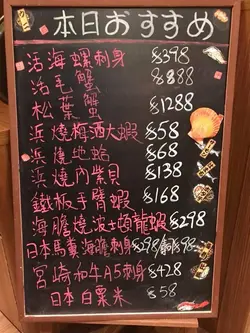 本日おすすめ
活海螺刺身 $398
活毛蟹 $888
松葉蟹 $1288
浜燒梅酒大蝦 $58
浜燒地蛤 $68
浜燒內紫貝 $138
鐵板手臂蝦 $168
海膽燒波士頓龍蝦 $298
日本馬糞海膽刺身 $298/ $98
宮崎和牛A5刺身 $428
日本白粟米 $58